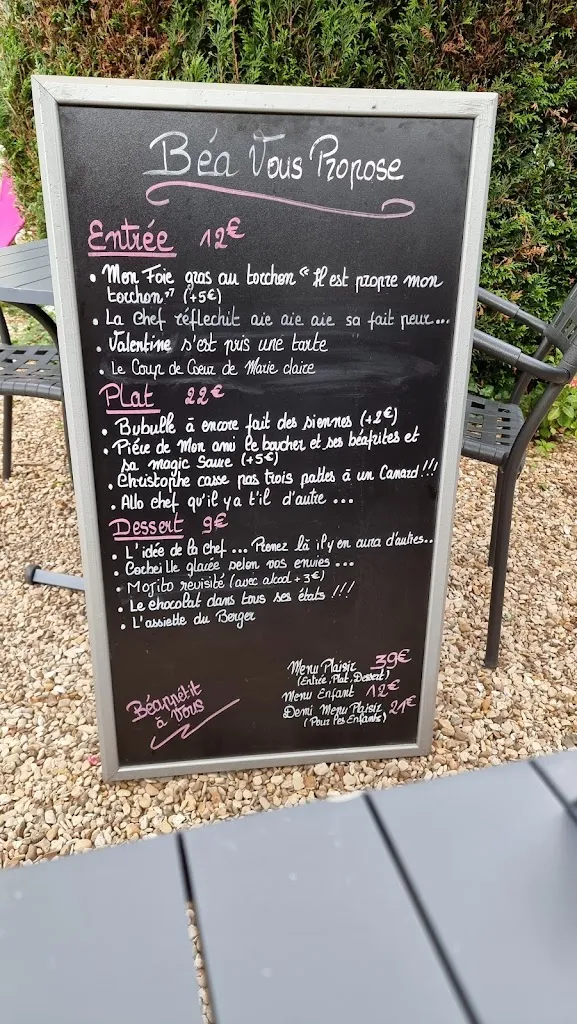 Béa Vous Propose
Entrée 12€
• Mon Foie gras au torchon "Il est propre mon
torchon" (+5€)
• La chef réflechit aie aie aie sa fait peur...
• Valentine s'est pris une tarte
• Le Coup de Coeur de Marie claire
Plat 22€
• Bubulle à encore fait des siennes (+2€)
• Piéce de Mon ami le boucher et ses béafrites et
sa magic Sauce (+5€)
• Christophe casse pas trois pattes à un Canard!!!
• Allo chef qu'il y a t'il d'autre ...
Dessert 9€
• L'idée de la chef ... Prenez là il y en aura d'autres..
• Corbeille glacée selon vos envies ...
• Mojito revisité (avec alcool + 3€)
• Le chocolat dans tous ses états !!!
• L'assiette du Berger
Menu Plaisir 39€
(Entrée, Plat, Dessert)
Menu Enfant 12€
Demi Menu Plaisir 21€
(Pour les Enfants)
Béappétit
à Vous